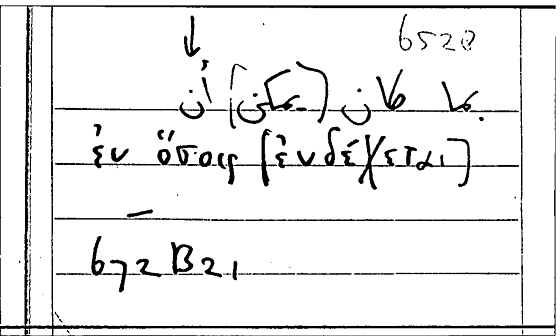 6528
بما كان (يمكن) أن
ἐν ὅσοις [ἐνδέχεται]
672B21